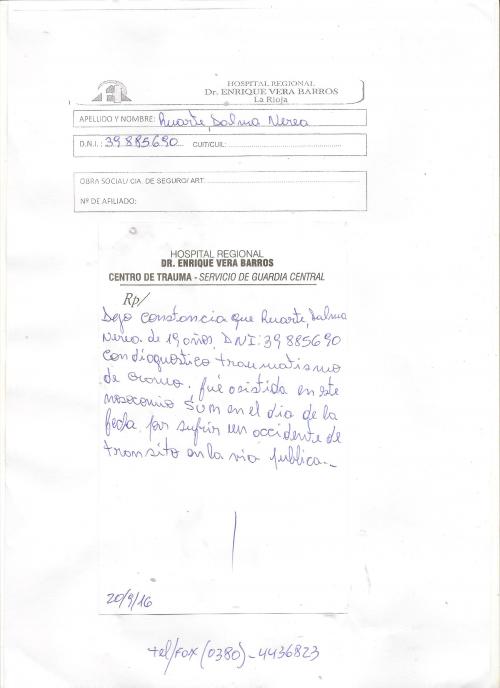 HOSPITAL REGIONAL
Dr. ENRIQUE VERA BARROS
La Rioja
APELLIDO Y NOMBRE: Ruarte, Dalma Nerea
D.N.I.: 39885690 CUIT/CUIL:
OBRA SOCIAL/ CIA. DE SEGURO/ ART.
Nº DE AFILIADO:
HOSPITAL REGIONAL
DR. ENRIQUE VERA BARROS
CENTRO DE TRAUMA - SERVICIO DE GUARDIA CENTRAL
Rp/
Dejo constancia que Ruarte, Dalma
Nerea de 19 años, DNI: 39885690
con diagnostico traumatismo
de craneo. fué asistida en este
nosocomio en el dia de la
fecha por sufrir un accidente de
transito en la via publica.-
20/9/16
tel/fax (0380)-4436823